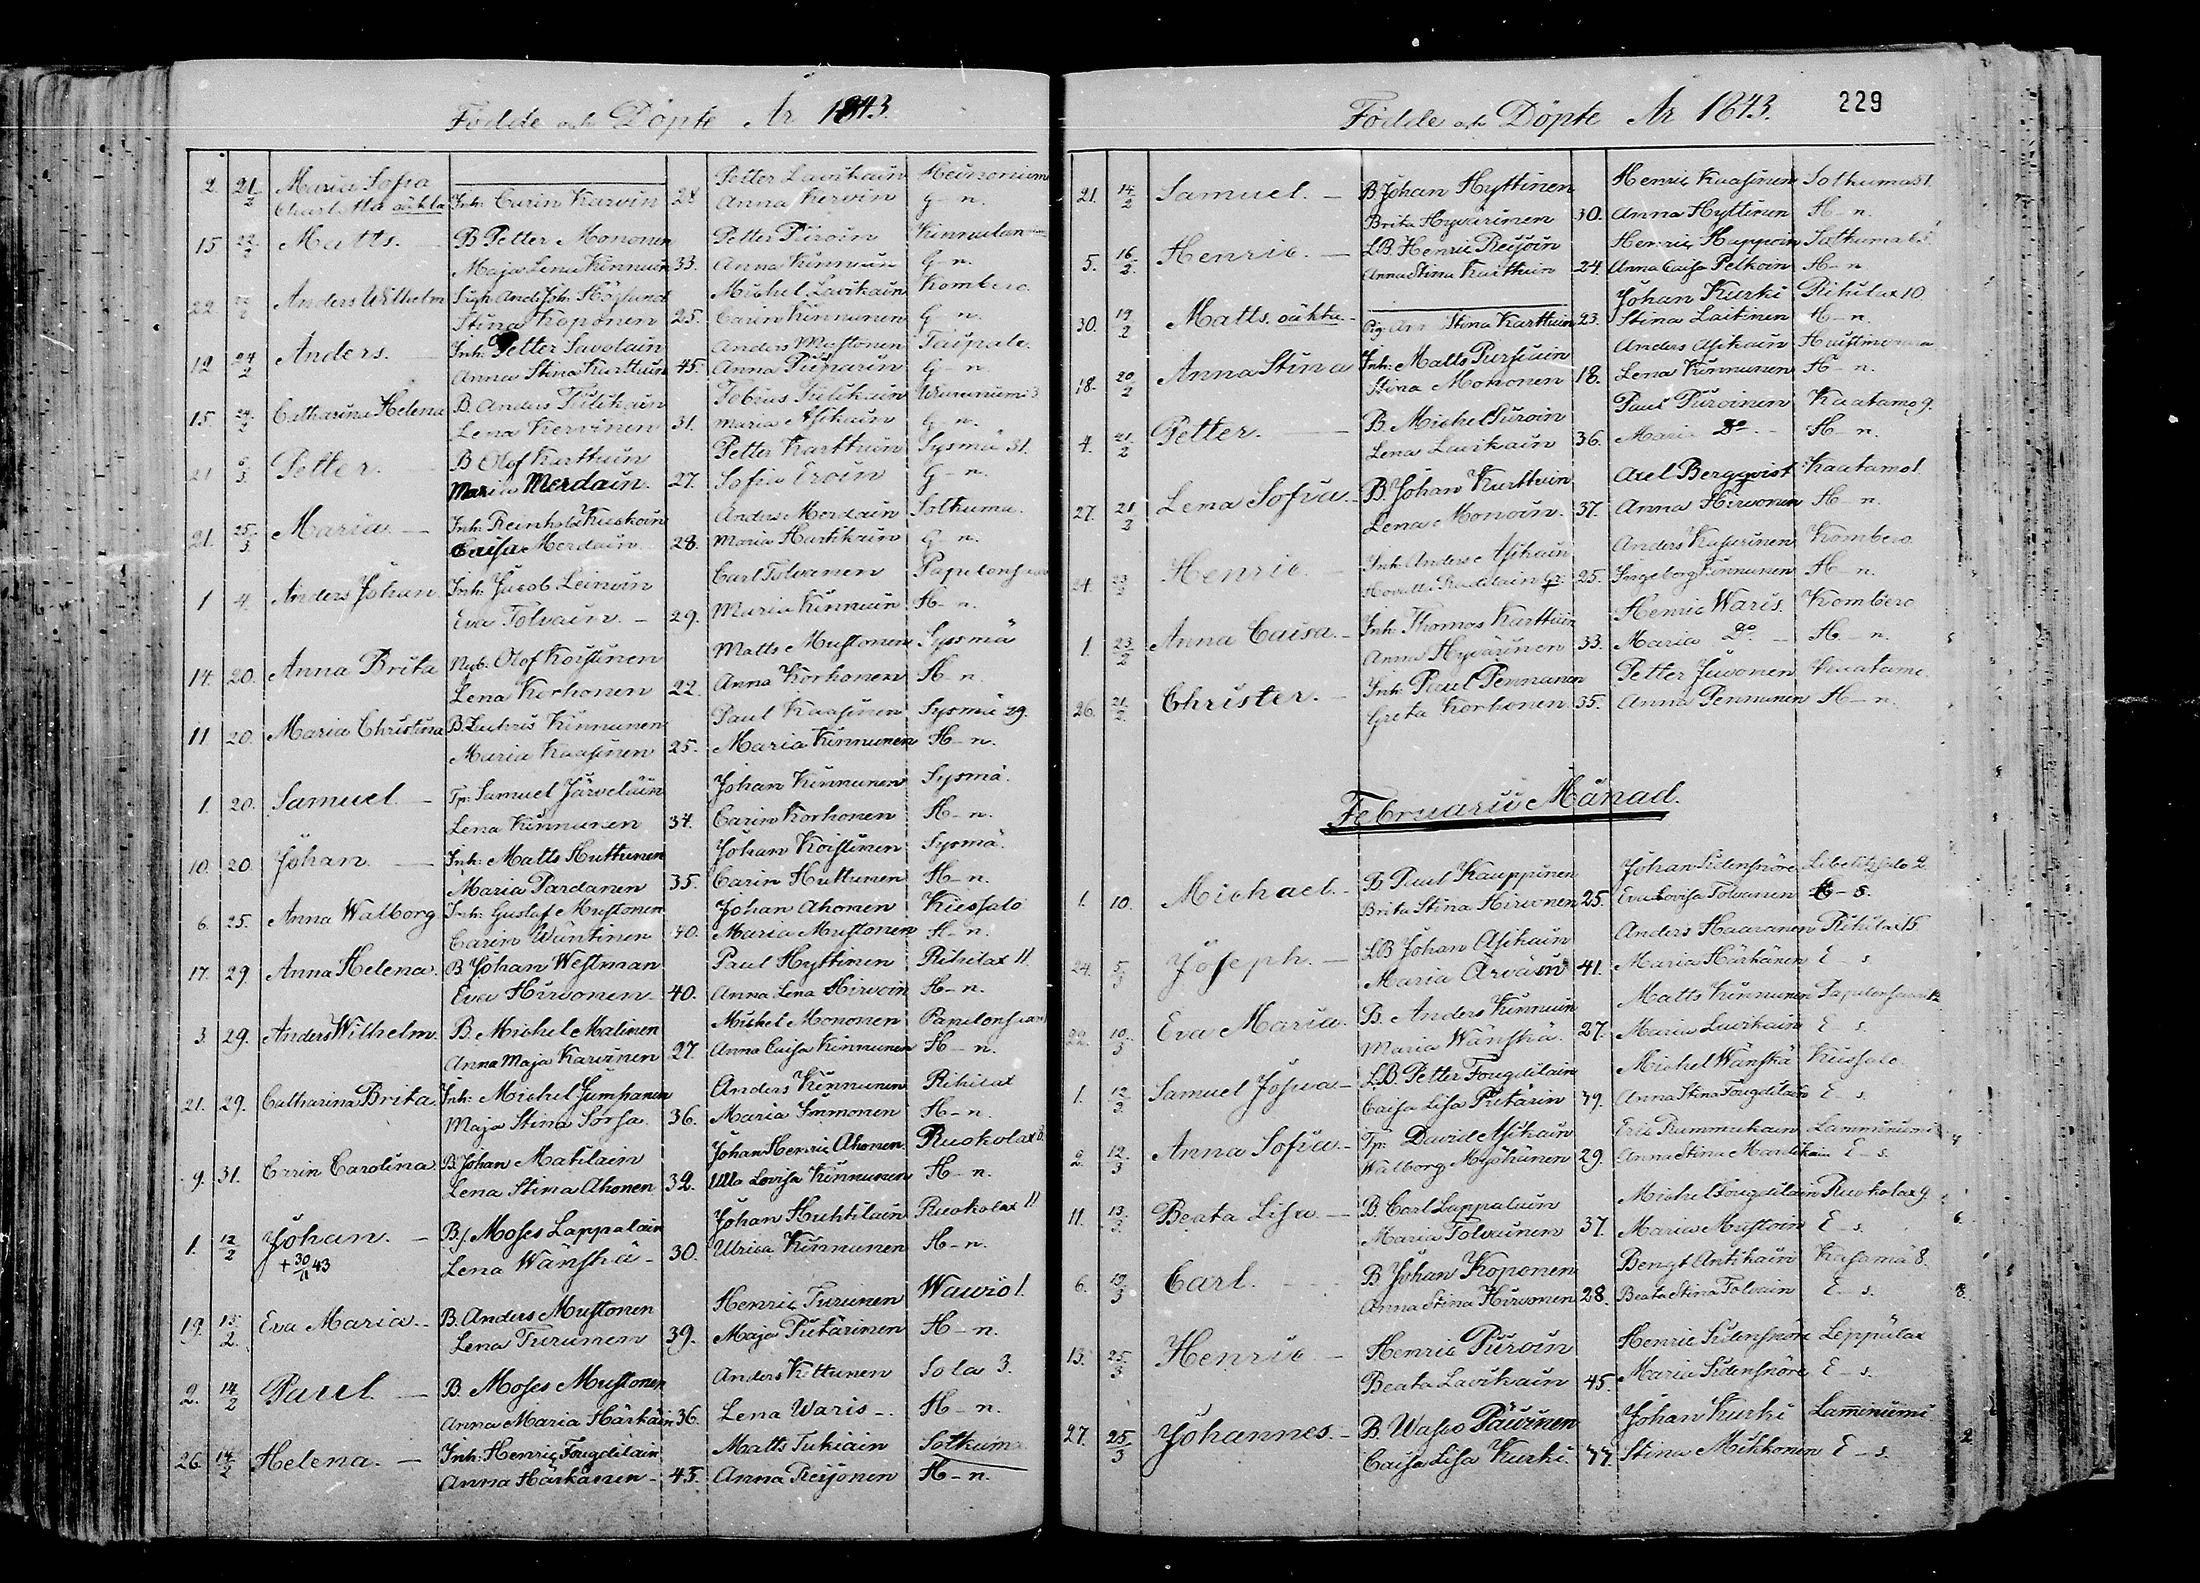 Födde och Döpte År 1843.
2 21/2 Maria Sofia Petter Lavikain
Charlotta oäkta Inh: Carin Karvin 28 Anna Kervin G-n.
15 22/2 Matts. B Petter Mononen Petter Piiroin
Maja Lena Kinnuin 33. Anna Kinnuin G-n.
22 22/2 Anders Wilhelm Höglund Michel Lavikain Kombero
Stina Koponen 25. Carin Kinnunen G-n.
12 24/2 Anders. Inh: Petter Savolain Anders Mustonen Taipale.
Anna Stina Karttuin 45. Anna Piiparin G-n.
15. 24/2 Catharina Helena B. Anders Tiilikain Tobias Tiilikain
Lena Kervinen 31. Maria Asikain G-n.
21 6/3 Petter. B Olof Karttuin Petter Karttuin Sysmä 31.
Maria Merdain. 27. Sofia Eroin G-n.
21. 25/3 Maria Inh: Reinhold Kuskoin Anders Merdain Sotkuma.
Caisa Merdain 28. Maria Hartikain G-n.
1 4. Anders Johan Inh: Jacob Leinoin Carl Tolvanen
Eva Tolvain. 29. Maria Kinnuin H-n.
14. 20. Anna Brita Nyb: Olof Koistinen Matts Mustonen Sysmä
Lena Korhonen 22. Anna Korhonen H-n.
11 20. Maria Christina B. Zachris Kinnunen Paul Kaasinen Sysmä 29.
Maria Kaasinen 25. Maria Kinnunen H-n.
1. 20. Samuel Tp: Samuel Järveläin Johan Kinnunen Sysmä.
Lena Kinnunen 34. Carin Korhonen H-n.
10. 20 Johan Inh: Matts Huttunen Johan Koistinen Sysmä.
Maria Pardanen 35. Carin Huttunen H-n.
6. 25. Anna Walborg Inh: Gustaf Mustonen Johan Ahonen Kiessalo
Carin Väntinen 40. Maria Mustonen H-n.
17. 29. Anna Helena. B Johan Westman Paul Hyttinen Rihilax 11.
Eva Hirvonen 40. Anna Lena Hirvoin H-n.
3. 29. Anders Wilhelm. B. Michel Malinen Michel Mononen
Anna Maja Karvinen 27. Anna Caisa Kinnunen H-n.
21. 29. Catharina Brita. Inh: Michel Jumpanen Anders Kinnunen Rihilax
Maja Stina Sorsa. 36. Maria Immonen H-n.
9. 31. Carin Carolina B. Johan Matilain Johan Henric Ahonen Ruokolax
Lena Stina Ahonen 32. Ulla Lovisa Kinnunen H-n.
1. 12/2 Johan. B. Moses Lappalain Johan Huhtilain Ruokolax 11
+ 30/11 43 Lena Wänskä 30. Ulrica Kinnunen H-n.
19. 15/2 Eva Maria B. Anders Mustonen Henric Turunen Wawio 1.
Lena Turunen 39. Maja Piitärinen H-n.
2. 14/2 Paul B. Moses Mustonen Anders Kettunen Sola 3.
Anna Maria Härkäin 36. Lena Waris H-n.
26. 14/2 Helena. Inh: Henric Fougdilain Matts Tukiain Sotkuma
Anna Härkänen 45. Anna Reijonen H-n.
Födde och Döpte År 1843. 229
21. 14/2 Samuel. B Johan Hyttinen Henric Kaasinen Sotkuma 31.
Brita Hyvärinen 30. Anna Hyttinen H-n.
5. 16/2. Henric. LB. Henric Reijoin Henric Happoin Sotkuma
Anna Stina Karttuin 24. Anna Caisa Pelkoin H-n
30. 19/2 Matts. oäkta Johan Kurki Rihilax 10.
Pig. Stina Karttuin 23. Stina Laitinen H-n.
18. 20/2 Anna Stina Inh: Matts Pursiain Anders Asikain
Stina Mononen 18. Lena Kinnunen H-n.
4. 21/2 Petter. B. Michel Piiroin Paul Piiroinen Kaatamo 9.
Lena Lavikain 36. Maria Do H-n.
27. 21/2 Lena Sofia B. Johan Karttuin Axel Bergqvist Kaatamo 1.
Lena Monoin. 37. Anna Hirvonen H-n.
24. 23/2 Henric Inh: Anders Asikain Anders Kasurinen Kombero
25. Ingeborg Kinnunen H-n.
1. 23/2 Anna Caisa. Inh. Thomas Karttuin Henric Waris. Kombero
Anna Hyvärinen 33. Maria Do. H-n.
26. 21/2 Christer. Inh: Paul Pennanen Petter Juvonen Kaatamo.
Greta Korhonen 35. Anna Pennanen H-n.
Februarii Månad.
1. 10. Michael. B Paul Kauppinen Johan Sidensnöre
Brita Stina Hirvonen 25. Eva Lovisa Tolvanen E-s.
24. 5/3 Joseph. LB Johan Asikain Anders Haaranen Rihilax 15
Maria Ärväin 41. Maria Härkänen E-s
22. 10/3 Eva Maria. B. Anders Kinnuin Matts Kinnunen
Maria Wänskä 27. Maria Lavikain E-s.
1. 12/3 Samuel Josua L.B. Petter Fougdilain Michel Wänskä Kiissalo
Caisa Lisa Piitärin 39. Anna Stina Fougdilain E-s.
2. 12/3 Anna Sofia Tp: David Asikain Eric Rummukain
Walborg Myöhänen 29. Anna Stina Martikain E-s.
11. 13/3 Beata Lisa B. Carl Lappalain Michel Fougdilain Ruokolax 9
Maria Tolvainen 37. Maria Mustoin E-s.
6. 19/3 Carl. B Johan Koponen Bengt Antikain Kasamä 8.
Anna Stina Hirvonen 28. Beata Stina Tolvain E-s.
13. 25/3 Henric Henric Piiroin Henric Sidensnöre Leppälax
Beata Lavikain 45. Maria Sidensnöre E-s.
27. 25/3 Johannes. B. Wasio Päivinen Johan Kurki Lamminiemi
Caisa Lisa Kurki. 44. Stina Mikkonen E-s.